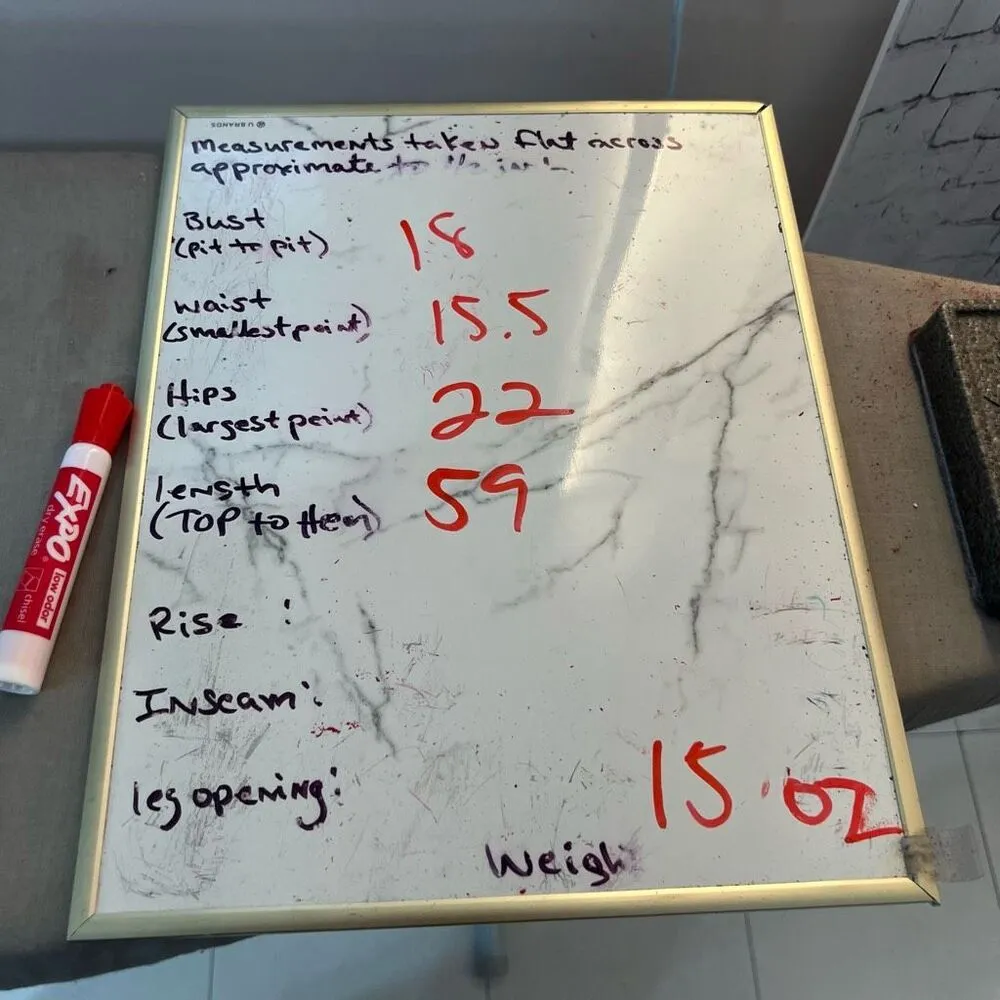 U BRANDS
Measurements taken flat across
approximate to the
Bust :
(pit to pit) 18
waist
(smallest point) 15.5
Hips
(largest point) 22
length
(TOP to Hem) 59
Rise :
INseam:
leg opening: 15 oz
Weigh
EXPO
dry erase
low odor
chisel